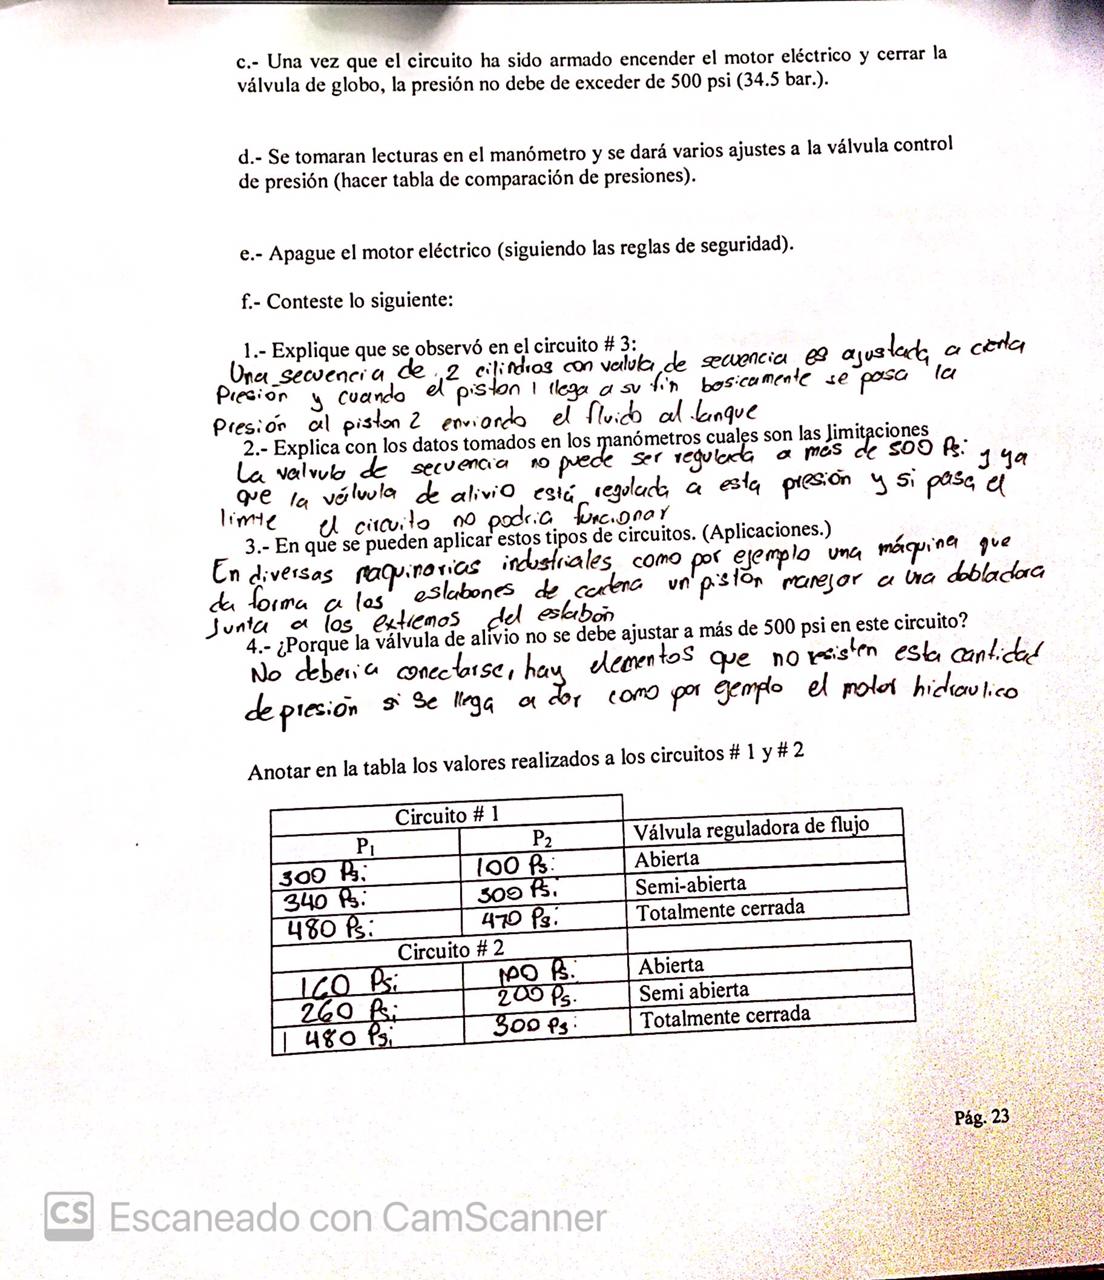 c.- Una vez que el circuito ha sido armado encender el motor eléctrico y cerrar la
válvula de globo, la presión no debe de exceder de 500 psi (34.5 bar.).
d.- Se tomaran lecturas en el manómetro y se dará varios ajustes a la válvula control
de presión (hacer tabla de comparación de presiones).
e.- Apague el motor eléctrico (siguiendo las reglas de seguridad).
f.- Conteste lo siguiente:
1.- Explique que se observó en el circuito # 3:
Una secuencia de 2 cilindros con valvula de secuencia es ajustada a cierta
Presión y cuando el piston 1 llega a su fin basicamente se pasa la
Presión al piston 2 enviando el fluido al tanque
2.- Explica con los datos tomados en los manómetros cuales son las limitaciones
La valvula de secuencia no puede ser regulada a mas de 500 Psi y ya
que la válvula de alivio está regulada a esta presión y si pasa el
limite el circuito no podria funcionar
3.- En que se pueden aplicar estos tipos de circuitos. (Aplicaciones.)
En diversas maquinarias industriales como por ejemplo una máquina que
da forma a los eslabones de cadena un pistón manejar a una dobladora
Junta a los extremos del eslabón
4.- ¿Porque la válvula de alivio no se debe ajustar a más de 500 psi en este circuito?
No deberia conectarse, hay elementos que no resisten esta cantidad
de presión si se llega a dar como por ejemplo el motor hidraulico
Anotar en la tabla los valores realizados a los circuitos # 1 y # 2
Circuito # 1
P1 P2 Válvula reguladora de flujo
300 Psi 100 Psi Abierta
340 Psi 300 Psi Semi-abierta
480 Psi 470 Psi Totalmente cerrada
Circuito # 2
160 Psi 100 Psi Abierta
260 Psi 200 Psi Semi abierta
480 Psi 300 Psi Totalmente cerrada
Pág. 23
CS Escaneado con CamScanner